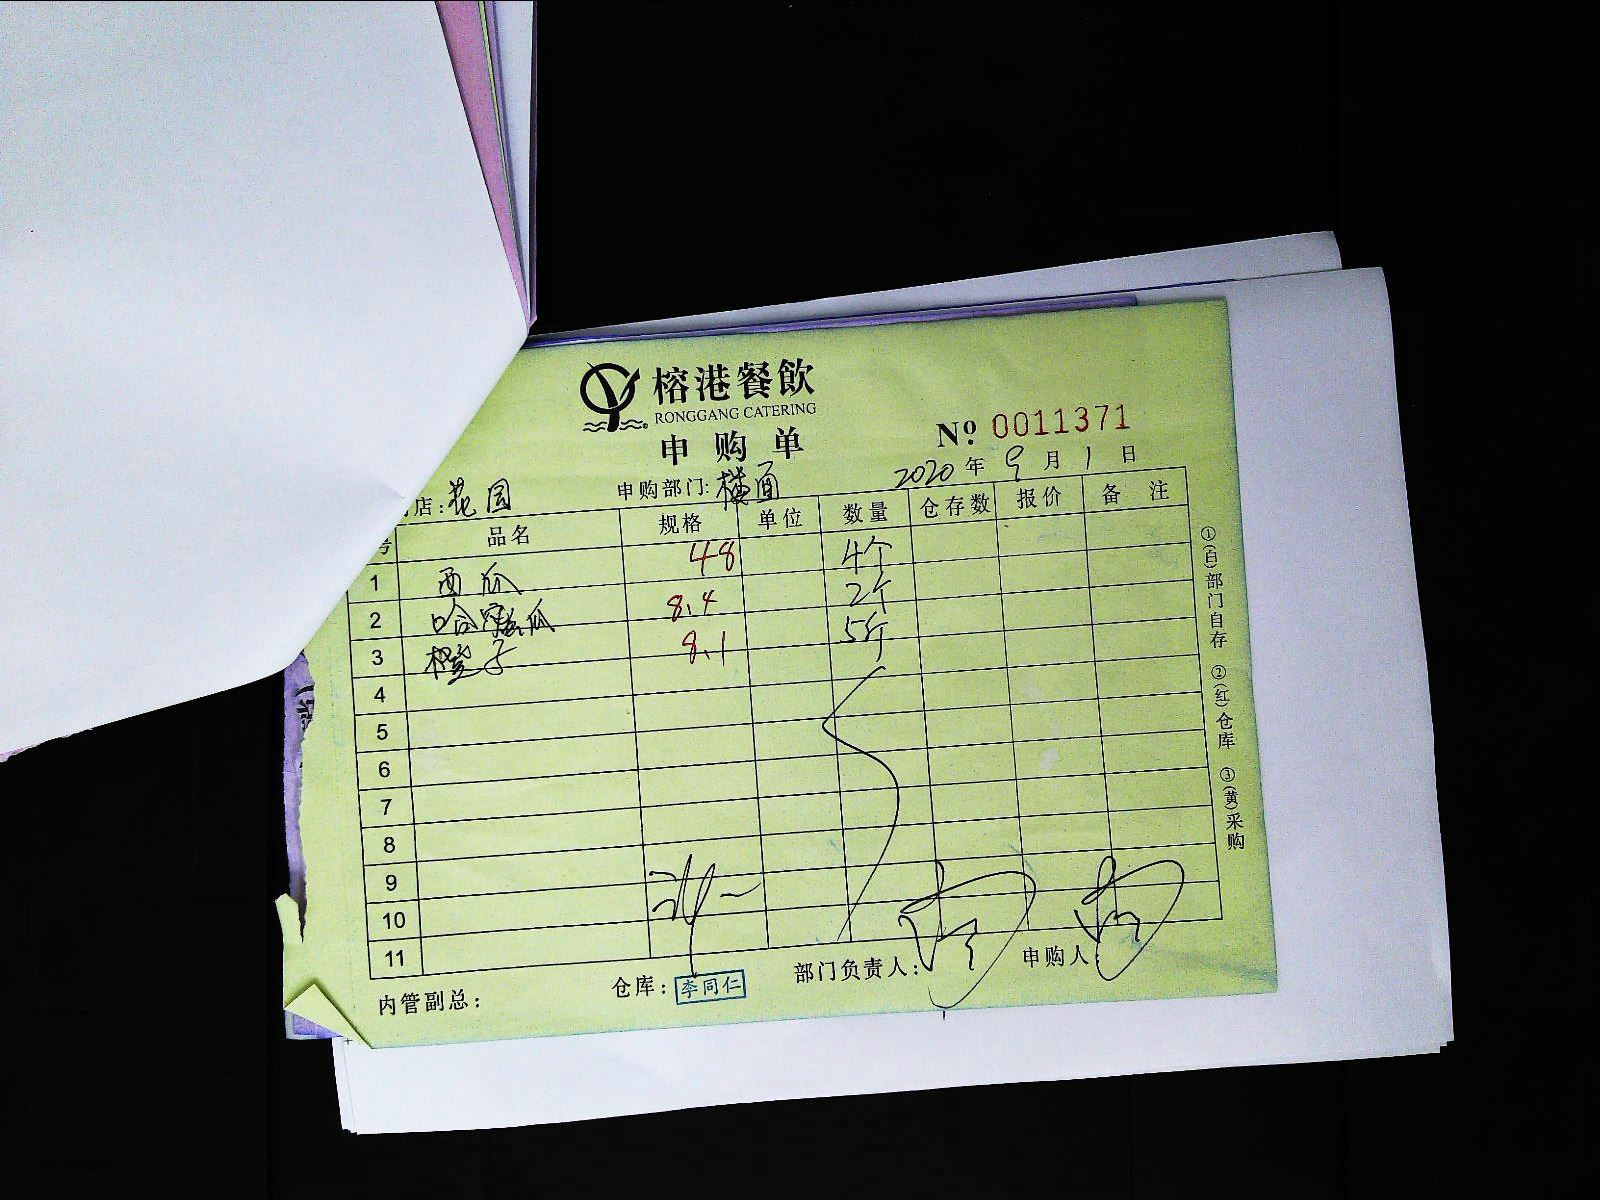 榕港餐飲
RONGGANG CATERING
申购单
Nº. 0011371
2020年9月1日
店:花园 申购部门:楼面
号 品名 规格 单位 数量 仓存数 报价 备注
1 西瓜 48 4个
2 哈密瓜 8.4 2个
3 橙子 8.1 5斤
4
5
6
7
8
9
10
11
内管副总: 仓库: 李同仁 部门负责人: 申购人:
①(白)部门自存 ②(红)仓库 ③(黄)采购